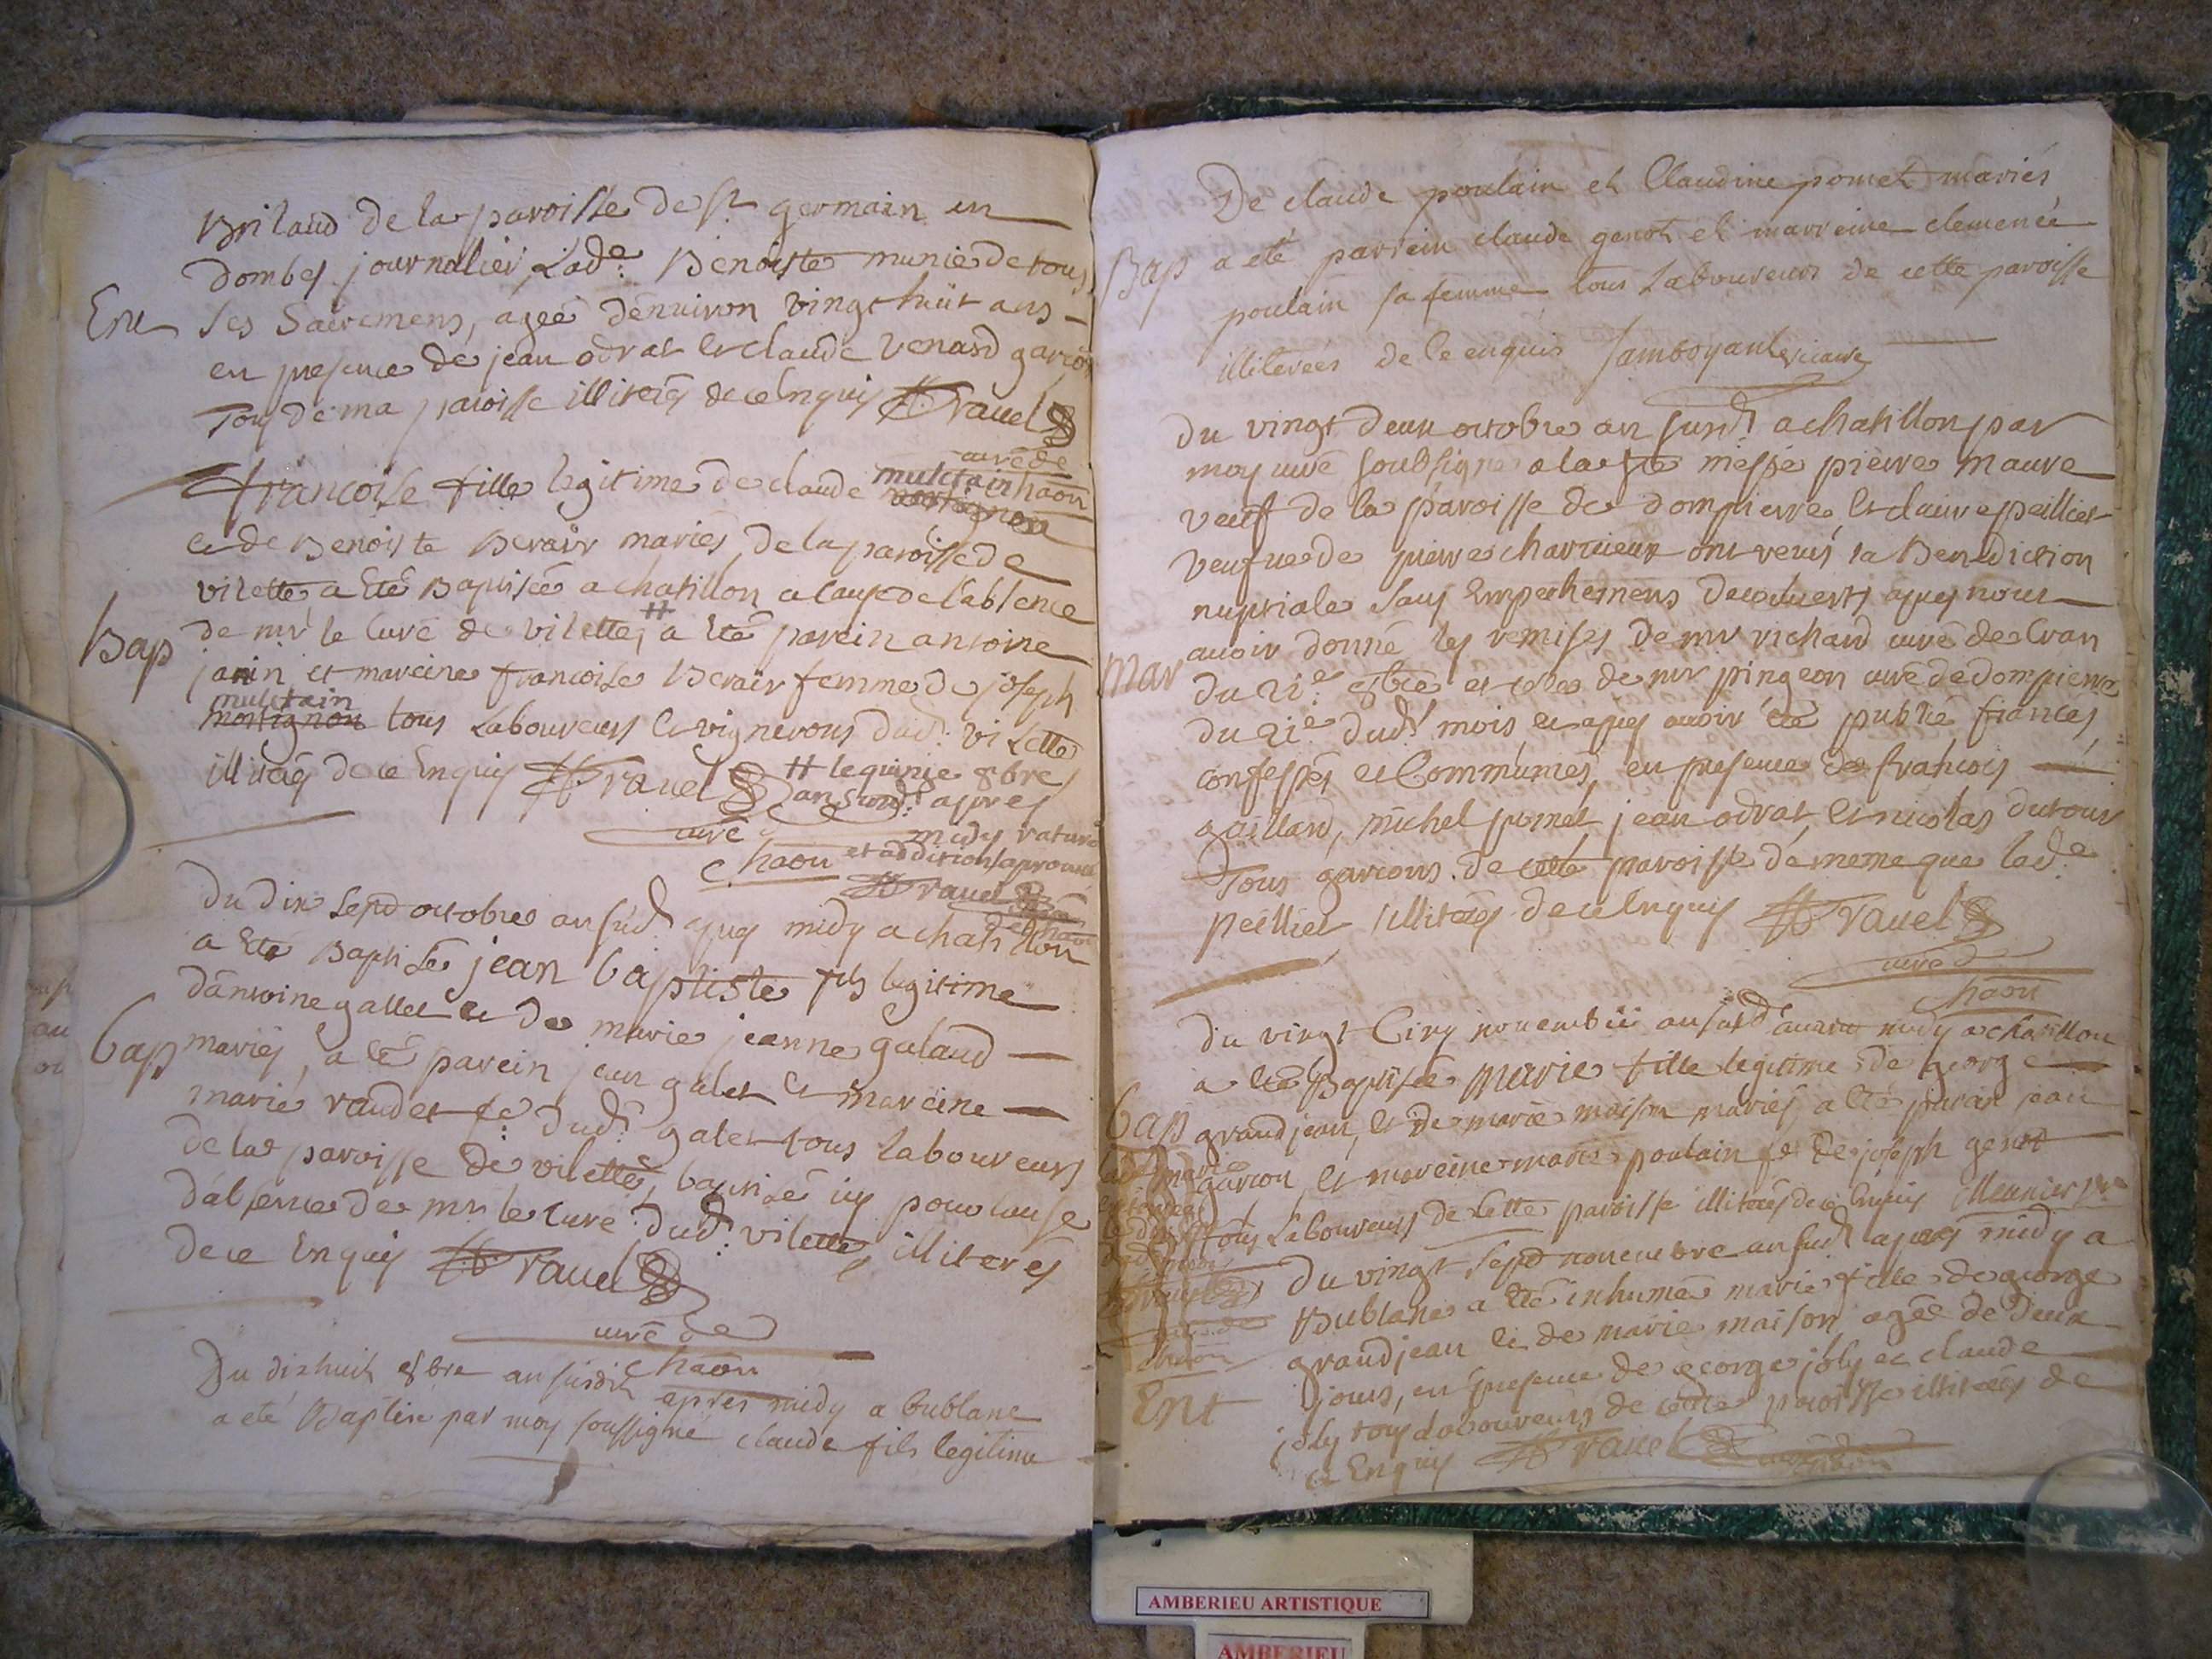 Brilaud de la paroisse de st germain en
dombes journalier, Lade. Benoiste munie de tous
Ent
ses Sacremens, agée denviron vingt huit ans
en presence de jean odrat et claude venard garçon
Tous de ma paroisse illiterés de ce Enquis Ravel
curé de
chaon
francoise fille legitime de claude mulctain
et de Benoiste Berair mariés, de la paroisse de
vilette a Eté Baptisée a chatillon a cause de l'absence
Bap
de mr le Curé de vilette, # a Eté parein antoine
janin et mareine francoise Berair femme de joseph
mulctain
mortignon tous Laboureurs et vignerons dud: vilette
illiterés de ce Enquis Ravel
curé
chaon
# le quinze 8bre
an susd: apres
midy rature
et addition aprouvé
Ravel
Du dix sept octobre an susd apres midy a chatillon
a Eté Baptisé jean baptiste fils legitime
d'antoine gallet et de marie jeanne galand
bap
mariés, a eté parein jean galet et mareine
marie raudet fe dud: galet tous laboureurs
de la paroisse de vilette, baptisé icy pour cause
d'absence de mr le curé dud: vilette, illiterés
de ce Enquis Ravel
curé de
chaon
Du dixhuit 8bre an susdit apres midy a bublane
a eté Baptise par moy soussigné claude fils legitime
De claude poulain et Claudine pomet mariés
Bap
a eté parrein claude genot et marreine clemence
poulain sa femme tous Laboureurs de cette paroisse
illiterées de ce enquis Jamboyant vicaire
Du vingt deux octobre an susd a chatillon par
moy curé soubsigné a la ste messe pierre maure
veuf de la paroisse de dompierre et claire peillier
veufve de pierre charvieux ont receu la Benediction
nuptiale sans Empechemens decouverts apres nous
avoir donné les remises de mr richard curé de Cran
Mar
du 21e 8bre et celles de mr pingeon curé de dompierre
du 21e dud mois et apres avoir eté publié fiancés,
confessés et Communiés, en presence de francois
gaillard, michel pomet, jean odrat, et nicolas dutour
Tous garcons de cette paroisse de meme que lade
peillier illiterés de ce Enquis Ravel
curé de
chaon
Du vingt Cinq novembre an susd avant midy a chatillon
a eté Baptisée Marie fille legitime de george
bap
grandjean, et de marie maison mariés, a eté parain jean
garcon, et mareine marie poulain fe de joseph genot
Tous Laboureurs de Cette paroisse illiterés de ce Enquis Meunier
Du vingt sept novembre an susd apres midy a
Bublane a Eté inhumé marie fille de george
grandjean et de marie maison agée de deux
Ent
jours, en presence de george joly et claude
joly tous laboureurs de cette paroisse illiterés de
ce Enquis Ravel
AMBERIEU ARTISTIQUE
AMBERIEU